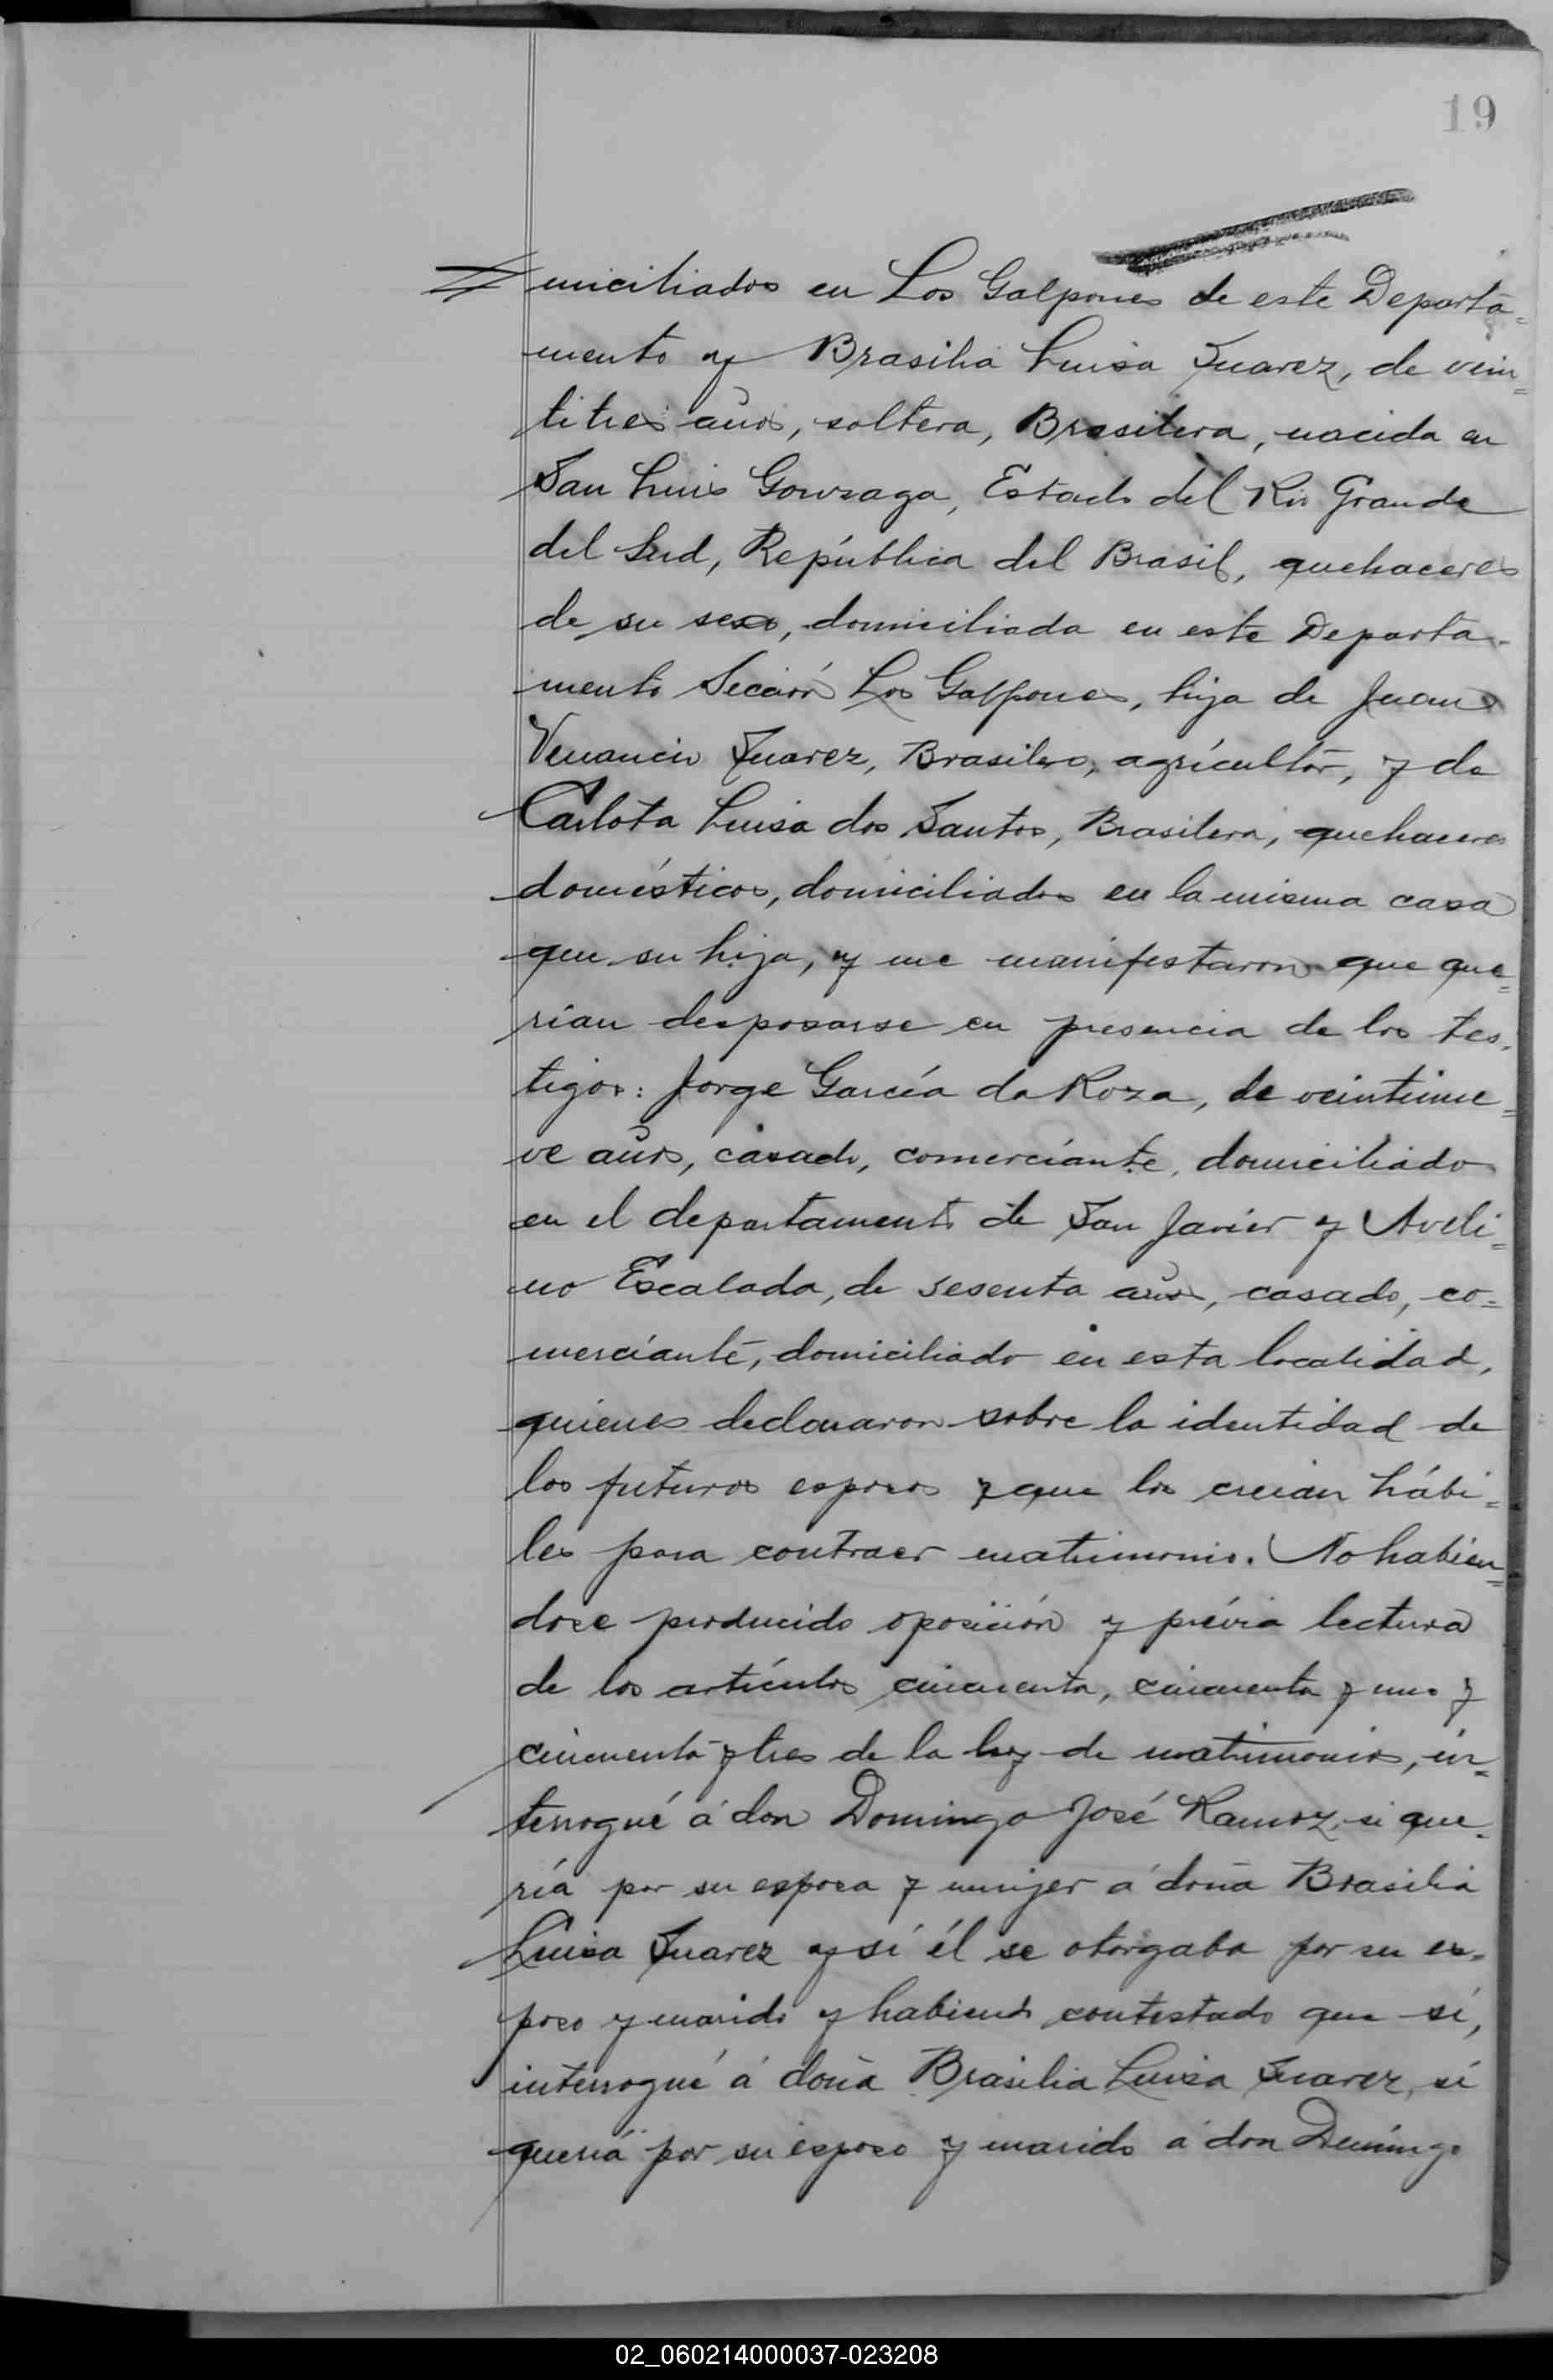 19
miciliados en Los Galpones de este Departa=
mento y Brasilia Luisa Suarez, de vein=
titres años, soltera, Brasilera, nacida en
San Luis Gonzaga, Estado del Rio Grande
del Sud, República del Brasil, quehaceres
de su sexo, domiciliada en este Departa-
mento Sección Los Galpones, hija de Juan
Venancio Suarez, Brasilero, agrícultor, y de
Carlota Luisa dos Santos, Brasilera, quehaceres
domésticos, domiciliados en la misma casa
que su hija, y me manifestaron que que=
rían desposarse en presencia de los tes-
tigos: Jorge García da Roza, de veintinue=
ve años, casado, comerciante, domiciliado
en el departamento de San Javier y Aveli=
no Escalada, de sesenta años, casado, co=
merciante, domiciliado en esta localidad,
quienes declararon sobre la identidad de
los futuros esposos y que los creian hábi=
les para contraer matrimonio. No habien=
dose producido oposición y prévia lectura
de los artículos cincuenta, cincuenta y uno y
cincuenta y tres de la ley de matrimonios, in=
terrogué á don Domingo José Ramoz, si que-
ría por su esposa y mujer á doña Brasilia
Luisa Suarez y sí él se otorgaba por su es-
poso y marido y habiendo contestado que sí,
interrogué á doña Brasilia Luisa Suarez, sí
quería por su esposo y marido á don Domingo
02_060214000037-023208